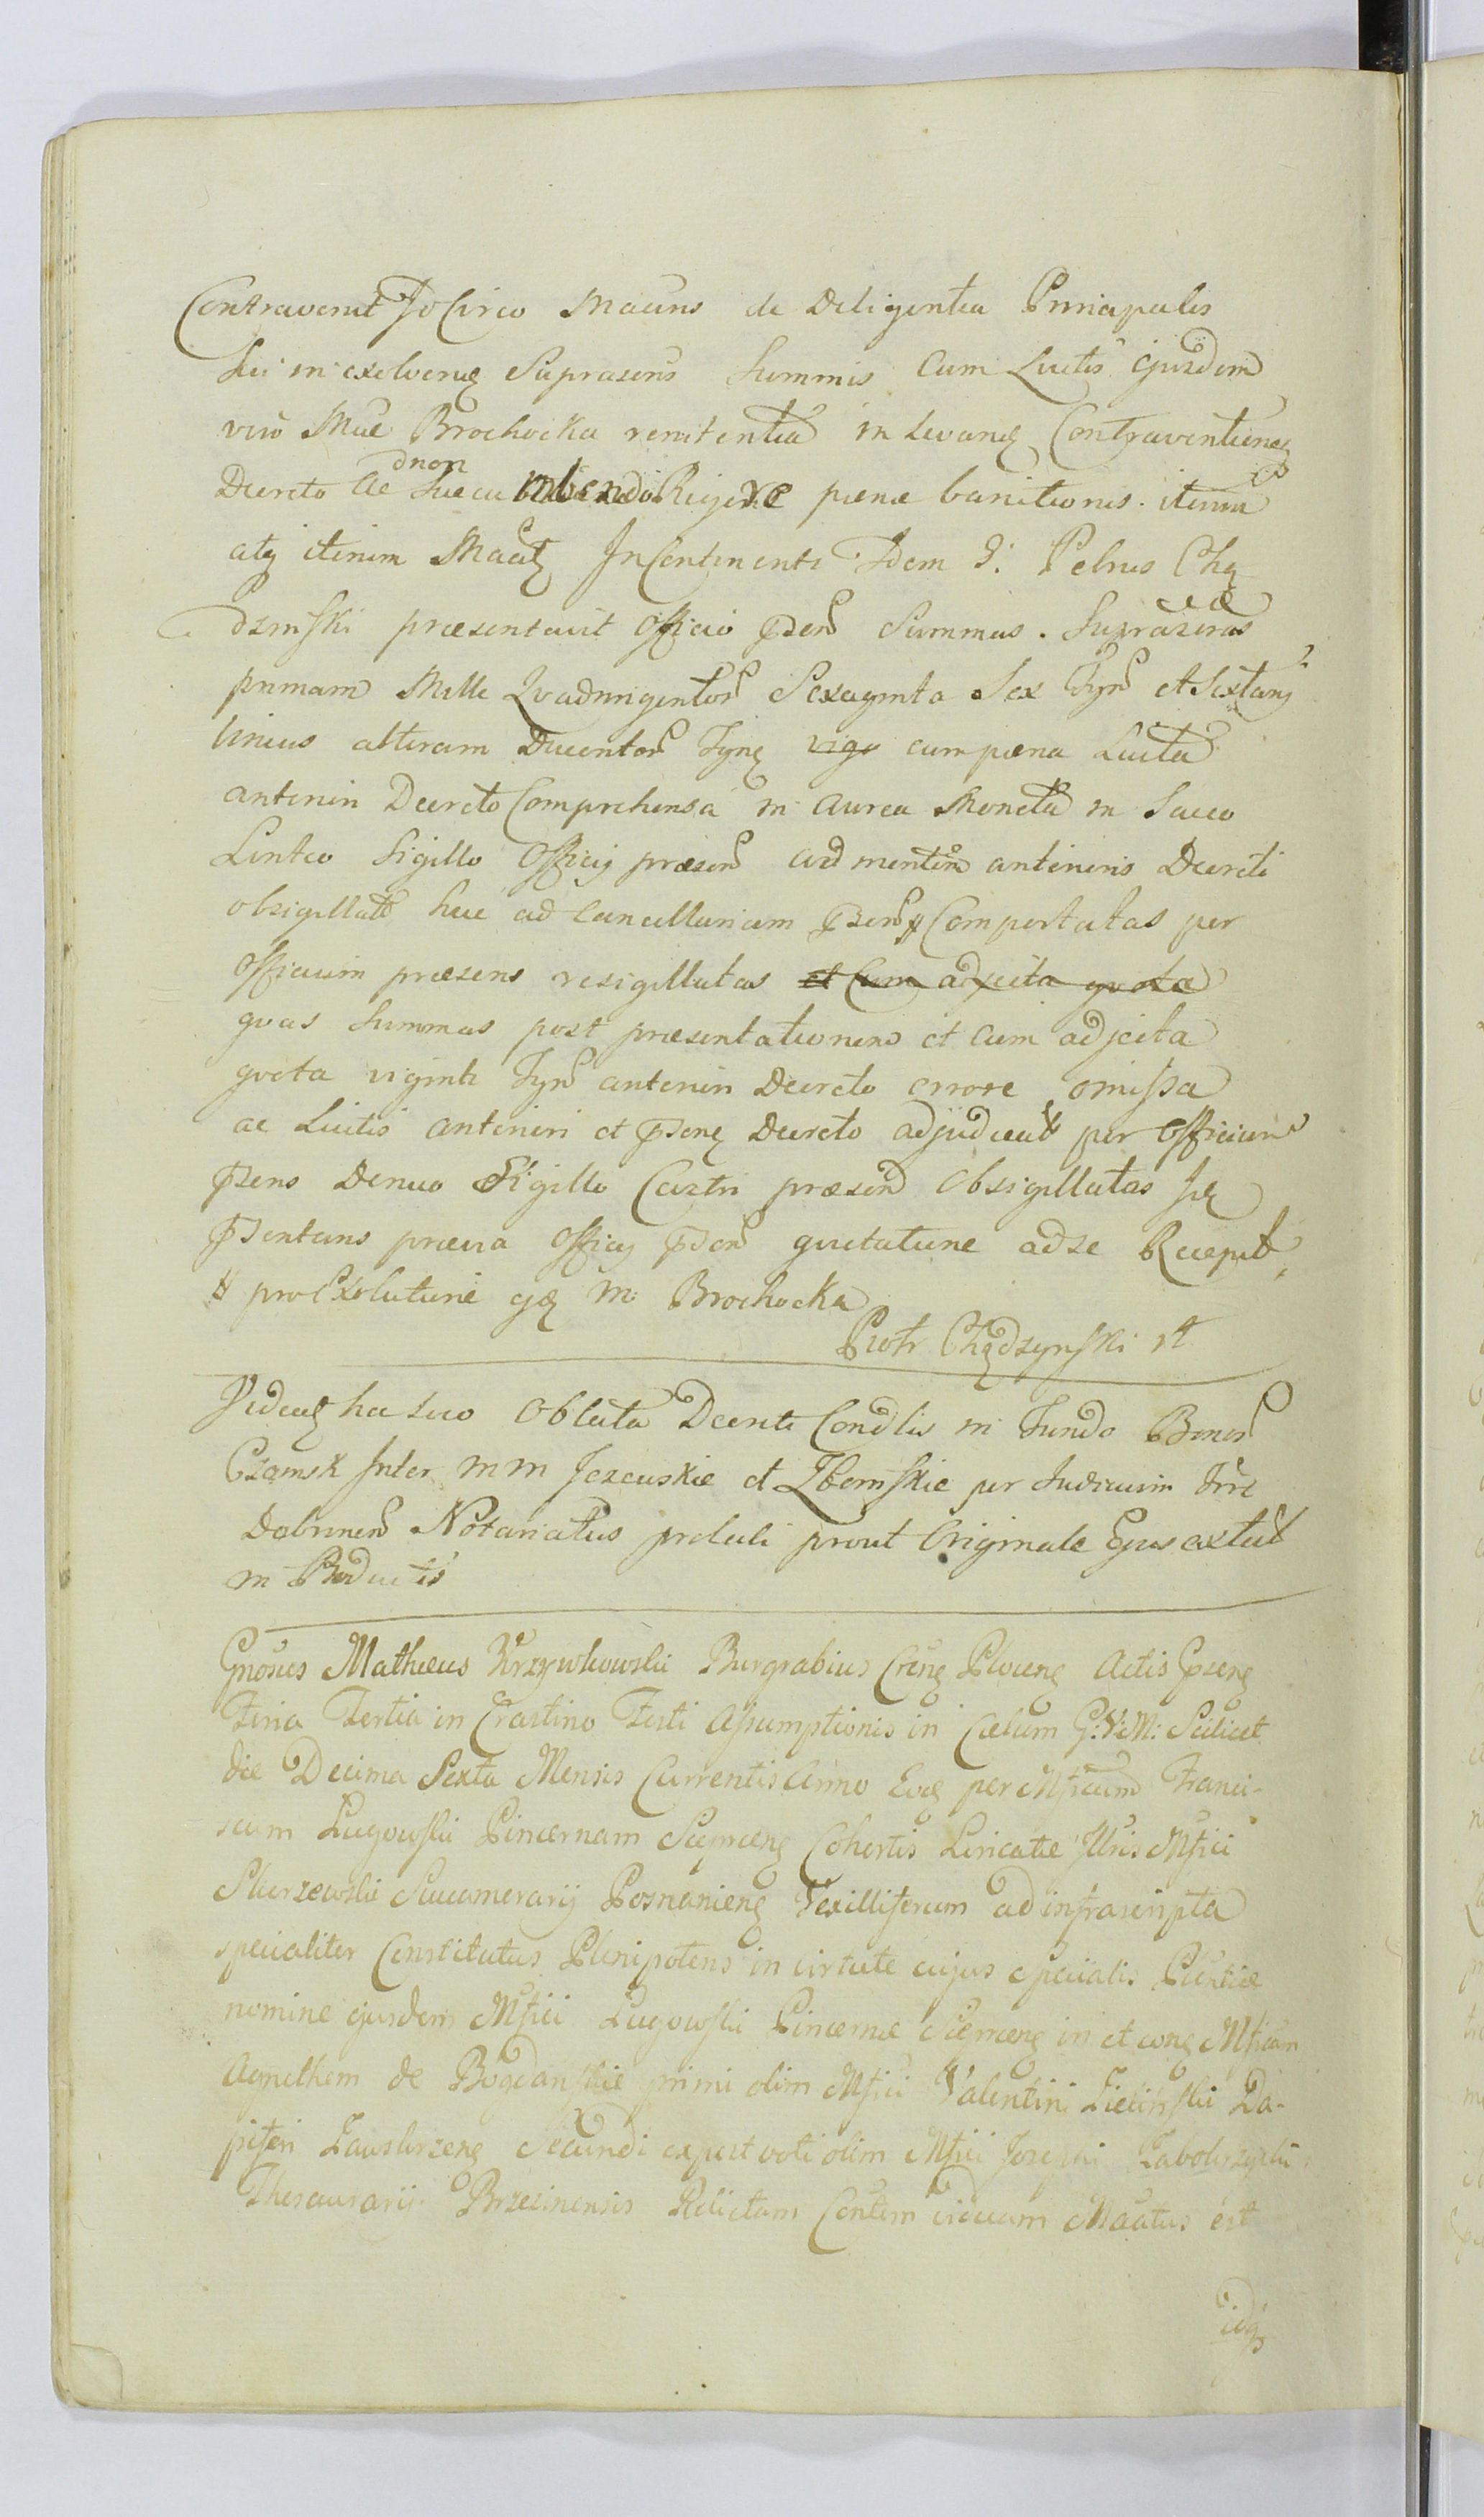 Contravenit Jdcirco Mańns de Diligentia Principalis
Sui in exolvenę Supraseris Summis Cum Luctis ejusdem
viro Mae Brochocka renitentia in Levanę Contraventionę
dnon
Decreto ac Succumbendo Rigore pænæ banitionis. iterum
atq iterum Maatę In Continenti Idem G: Petrus Chą
dzinski præsentavit Officio pseń Summas. Suprascras
primam Mille Qvadringentoń Sexaginta Sex Fyń et Sextanę
Unius alteram Ducentoń Fynę cum pæna Lucta
anteriń Decreto Comprehensa in Aurea Moneta in Sacco
Linteo Sigillo Officij præseń ad mentem anterioris Decreti
obsigillatt huc ad Cancellariam pseń # Comportatas per
Officium præsens resigillatas et Cum adjecta qvota
qvas Summas post præsentationem et Cum adjecta
qvota viginti Fyń anteriń Decreto errore omissa
ac Luctis anteriori et psenę Decreto adjudicatt per Officium
psens Denuo Sigillo Castri præseń Obsigillatas
psentans prævia Officij pseń qvietatione ad se Recepit
# pro Exolutione M: Brochocka
Piotr Chądzynski
Videatę hoc Loco Oblata Decreti Condlis in Fundo Bonoń
Czamsk Inter MM Jezewskie et per Judicium Trre
Dobrineń Notariatus prolati prout Originale Ejus extat
in Productis
Gnosus Mathæus Krzywkowski Burgrabius Crenę Plocenę Actis psenę
Feria Tertia in Crastino Festi Assumptionis in Cælum G: V: M: Scilicet
die Decima Sexta Mensis Currentis Anno Eoę per Mficum Franci-
scum Lugowski Pincernam Cohortis Loricatæ Illris Mfici
Skorzewski Succamerarij Posnanienę Vexilliferum ad infrascripta
specialiter Constitutus Plenipotens in virtute cujus specialis
nomine ejusdem Mfici Lugowski Pincernæ in et conę Mficam
Agnethem de Bogdanskie primi olim Mfici Valentini Zielinski Da-
piferi Zawskrzenę Secundi expost voti olim Mfici Josephi Zabokrzycki
Thesaurarij Brzezinensis Relictam Contem viduam Maatus est
idq